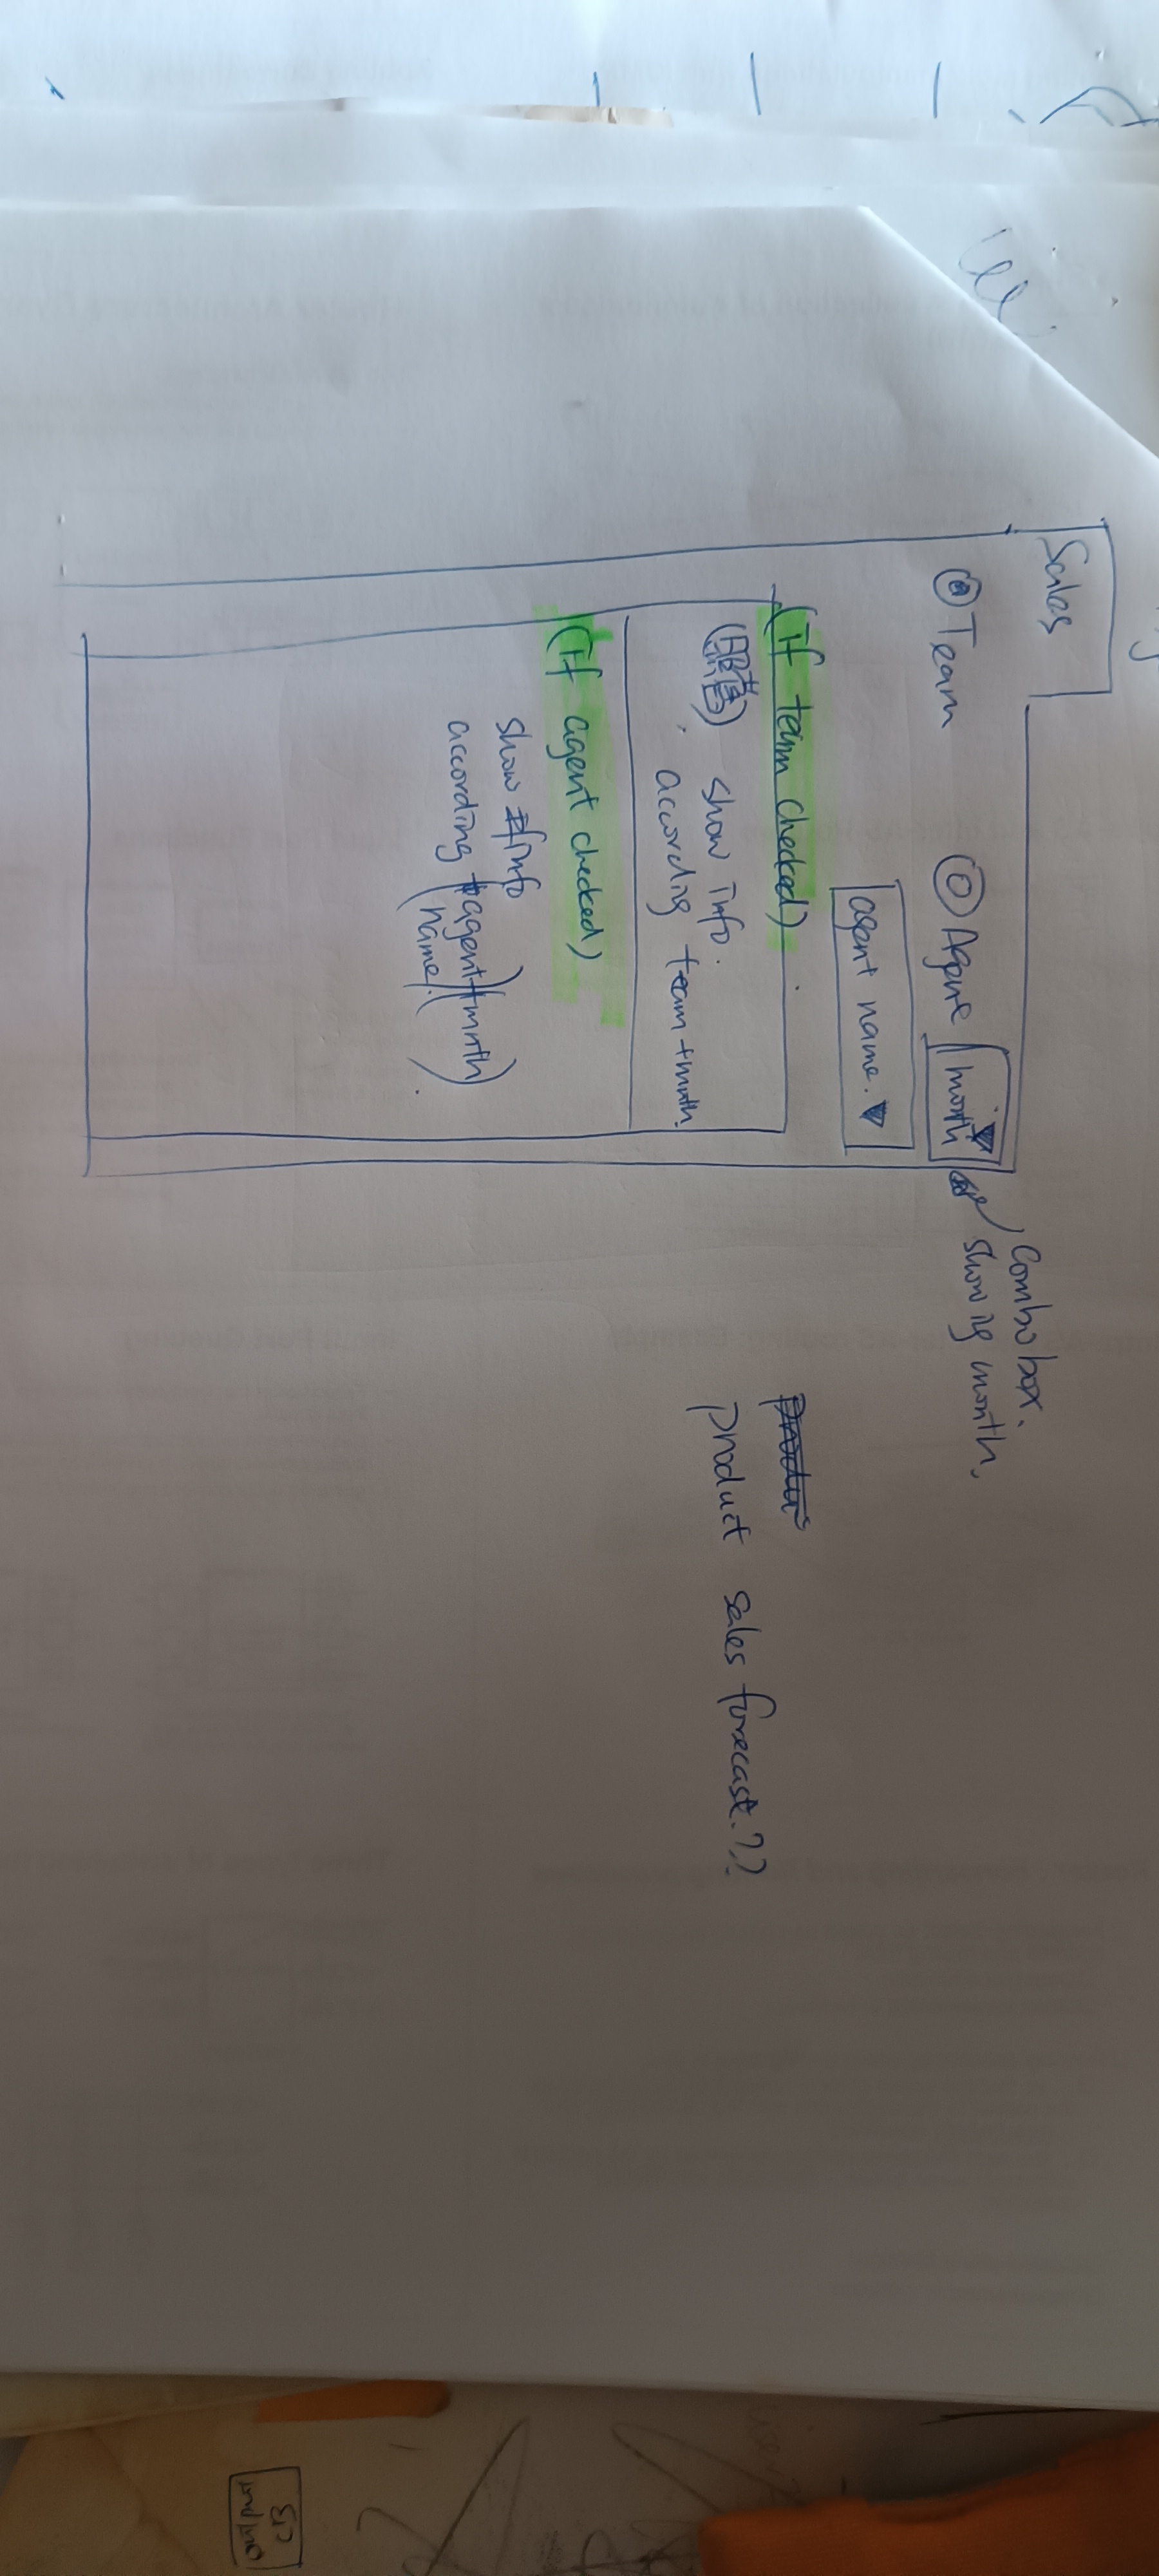 Sales
Team
Agent
month
Combo box.
showing month.
agent name.
(If team checked)
show info.
according team + mnth.
(If agent checked)
show info
according (agent + mnth)
(name.)
product sales forecast.??
output
CB